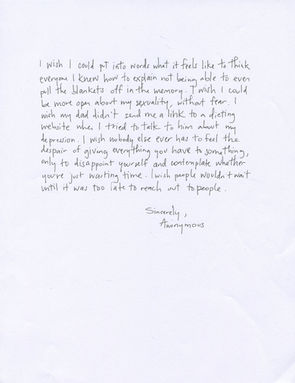 I wish I could put into words what it feels like to think
everyone I knew how to explain not being able to even
pull the blankets off in the memory. I wish I could
be more open about my sexuality, without fear. I
wish my dad didn't send me a link to a dieting
website when I tried to talk to him about my
depression. I wish nobody else ever has to feel the
despair of giving everything you have to something,
only to disappoint yourself and contemplate whether
you're just wasting time. I wish people wouldn't wait
until it was too late to reach out to people.
Sincerely,
Anonymous